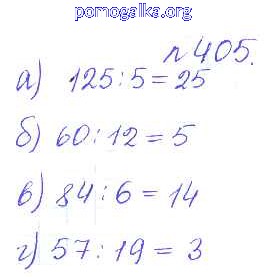 pomogalka.org
№405.
а) 125:5=25
б) 60:12=5
в) 84:6=14
г) 57:19=3